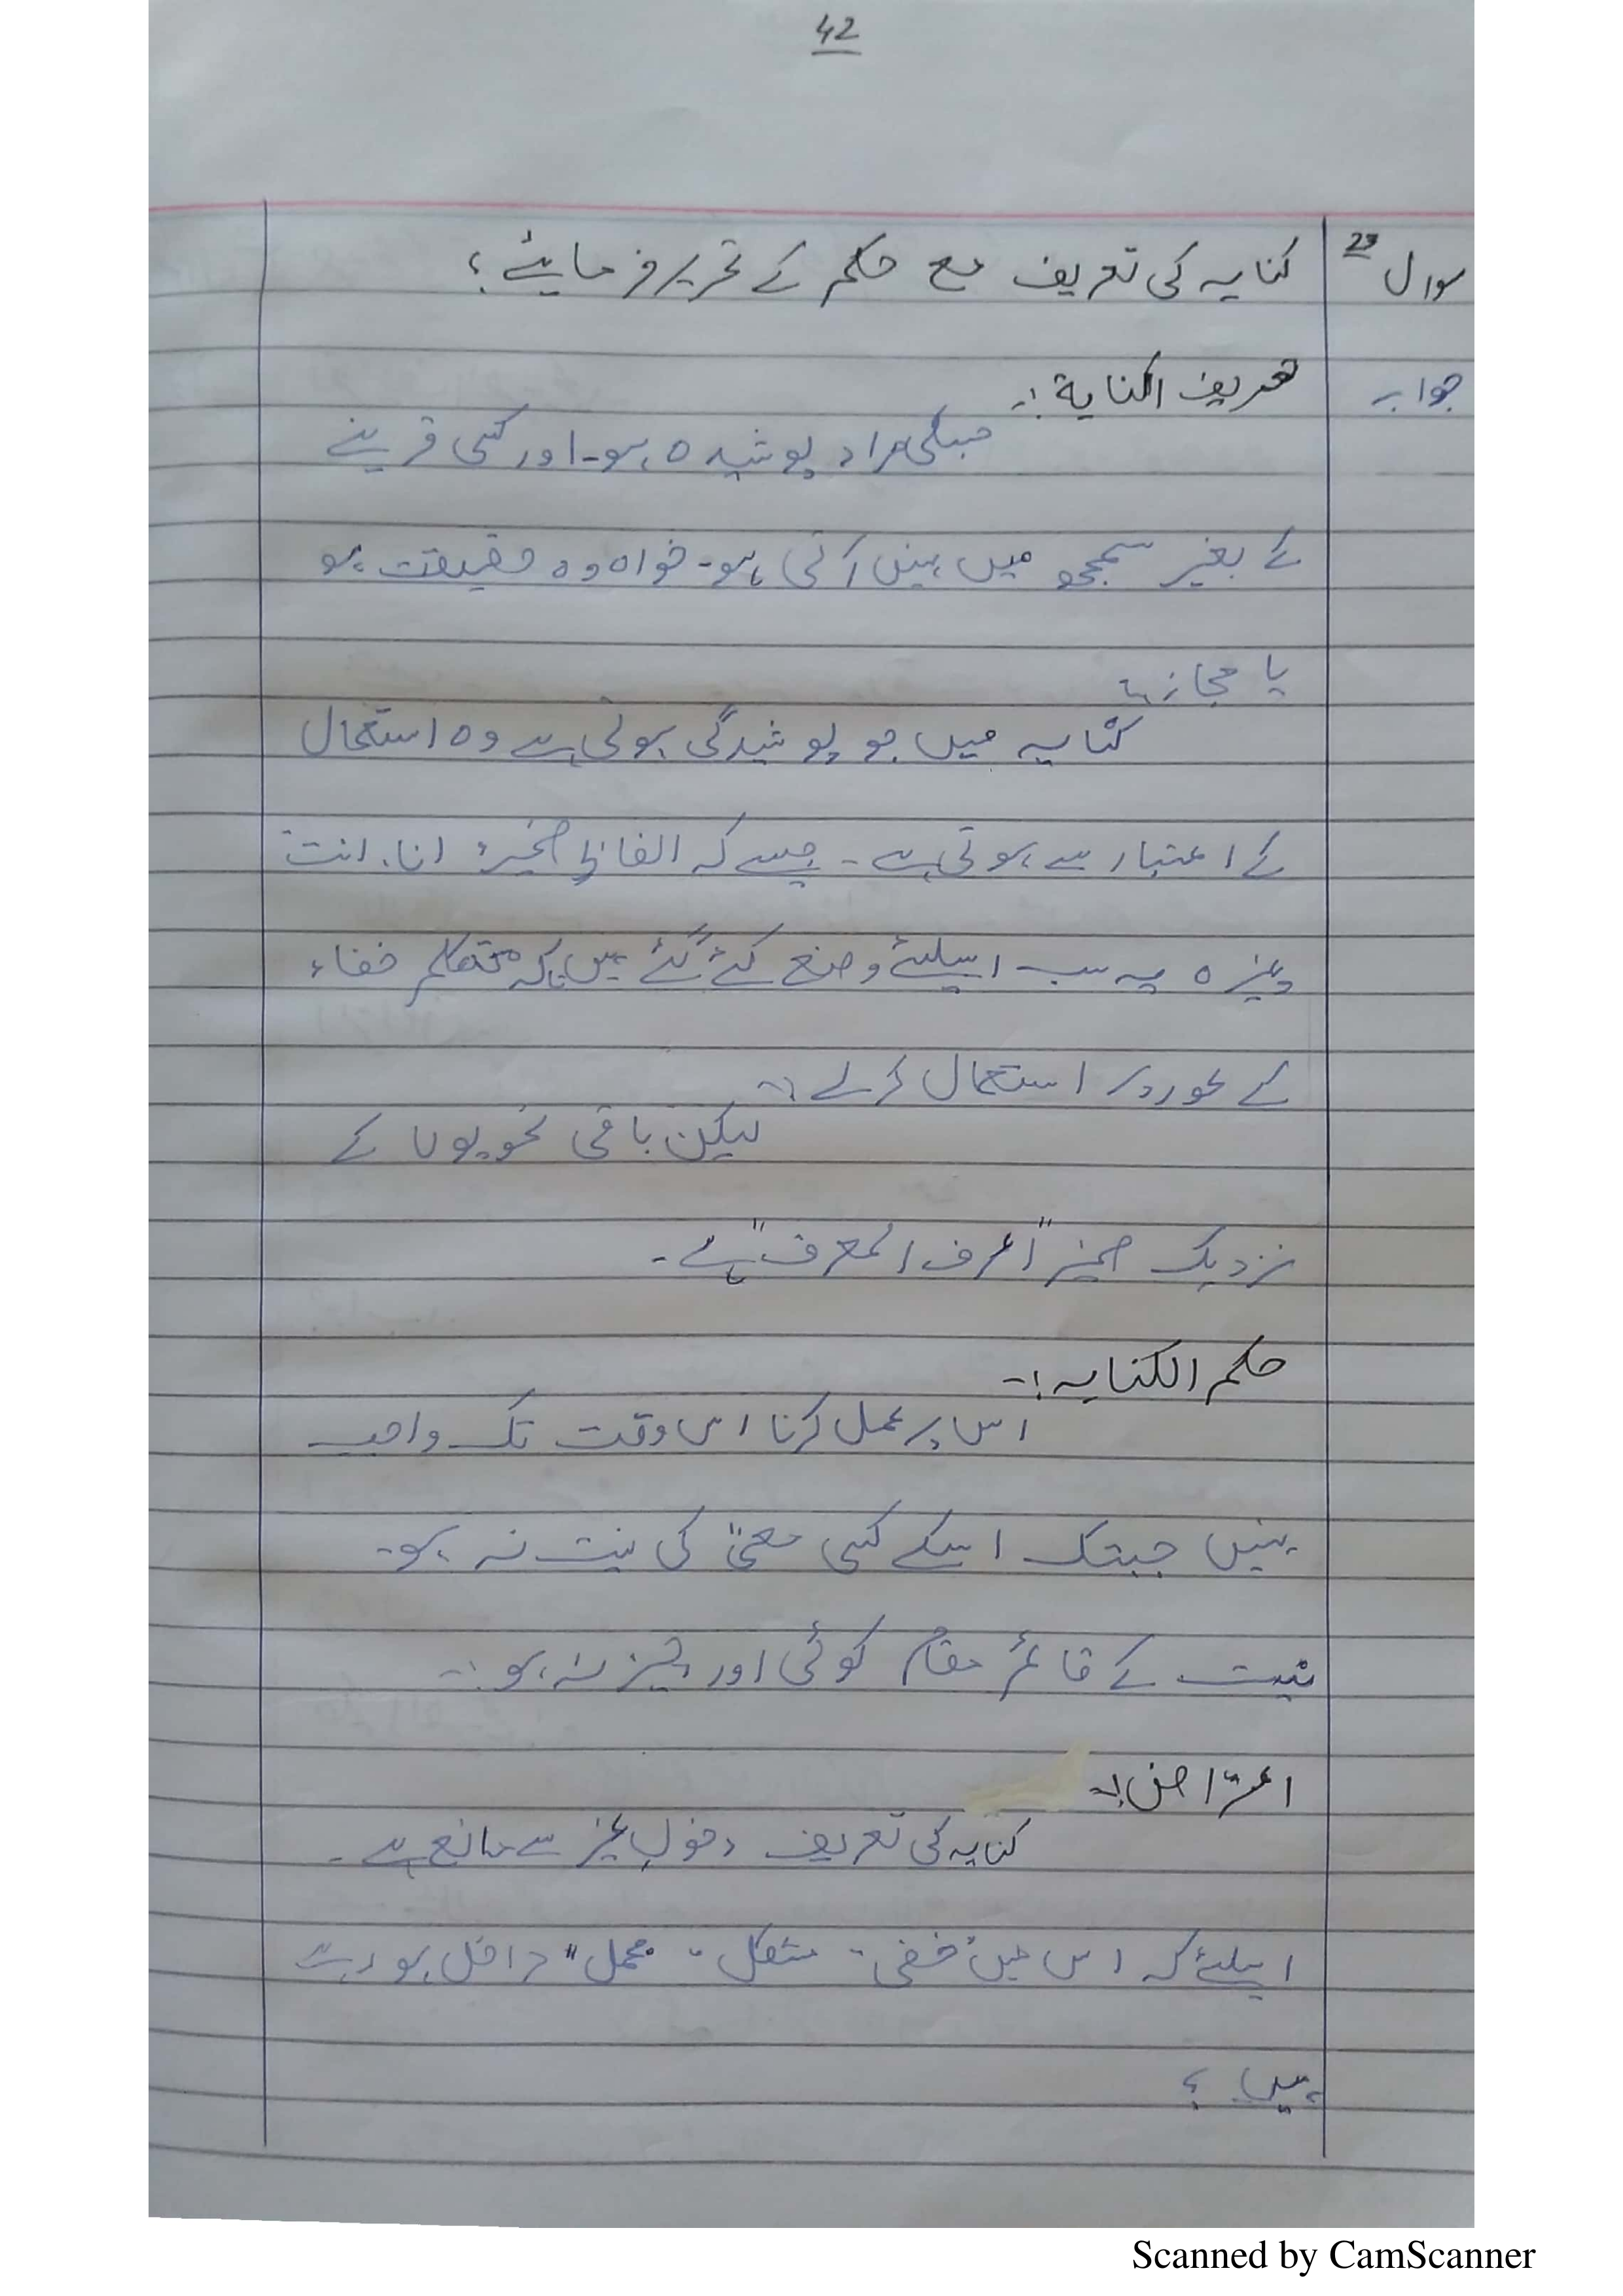 42
سوال 23 کنایہ کی تعریف مع حکم کے تحریر فرمایئے؟
جواب تعریف الکنایة :-
جسکی مراد پوشیدہ ہو۔ اور کسی قرینے
کے بغیر سمجھ میں نہیں آتی ہو۔ خواہ وہ حقیقت ہو
یا مجاز :-
کنایہ میں جو پوشیدگی ہوتی ہے وہ استعمال
کے اعتبار سے ہوتی ہے۔ جیسے کہ الفاظِ ضمیر، انا، انت
وغیرہ یہ سب اسلئے وضع کئے گئے ہیں تاکہ متکلم خفاء
کے طور پر استعمال کرلے :-
لیکن باقی نحویوں کے
نزدیک ضمیر "اعرف المعرف" ہے۔
حکم الکنایہ :-
اس پر عمل کرنا اس وقت تک واجب
نہیں جبتک اسکے کسی معنیٰ کی نیت نہ ہو۔
نیت کے قائم مقام کوئی اور چیز نہ ہو :-
اعتراض :-
کنایہ کی تعریف دخولِ غیر سے مانع ہے۔
اسلئے کہ اس میں "خفی - مشکل - مجمل" داخل ہو رہے
ہیں ؟
Scanned by CamScanner